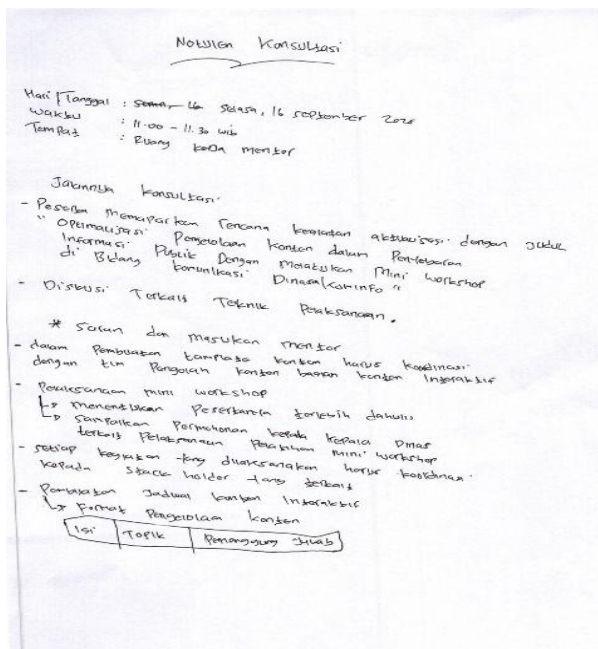 Notulen Konsultasi
Hari / Tanggal : Selasa, 16 September 2025
Waktu : 11.00 - 11.30 wib
Tempat : Ruang kerja mentor
Jalannya konsultasi
- Peserta memaparkan rencana kegiatan aktualisasi dengan judul
" Optimalisasi Pengelolaan Konten dalam Penyebaran
Informasi Publik Dengan Melakukan Mini Workshop
di Bidang komunikasi Dinas Kominfo "
- Diskusi Terkait Teknik Pelaksanaan.
* Saran dan masukan mentor
- dalam Pembuatan tamplate konten harus koordinasi
dengan tim Pengolah konten konten Interaktif
- Pelaksanaan mini workshop
↳ menentukan Pesertanya terlebih dahulu
↳ sampaikan Permohonan kepada kepala Dinas
terkait Pelaksanaan Pelatihan mini workshop
- setiap kegiatan yang dilaksanakan harus koordinasi
kepada Stack holder yang terkait
- Pembuatan Jadwal konten Interaktif
↳ Format Pengelolaan konten
Isi Topik Penanggung Jawab